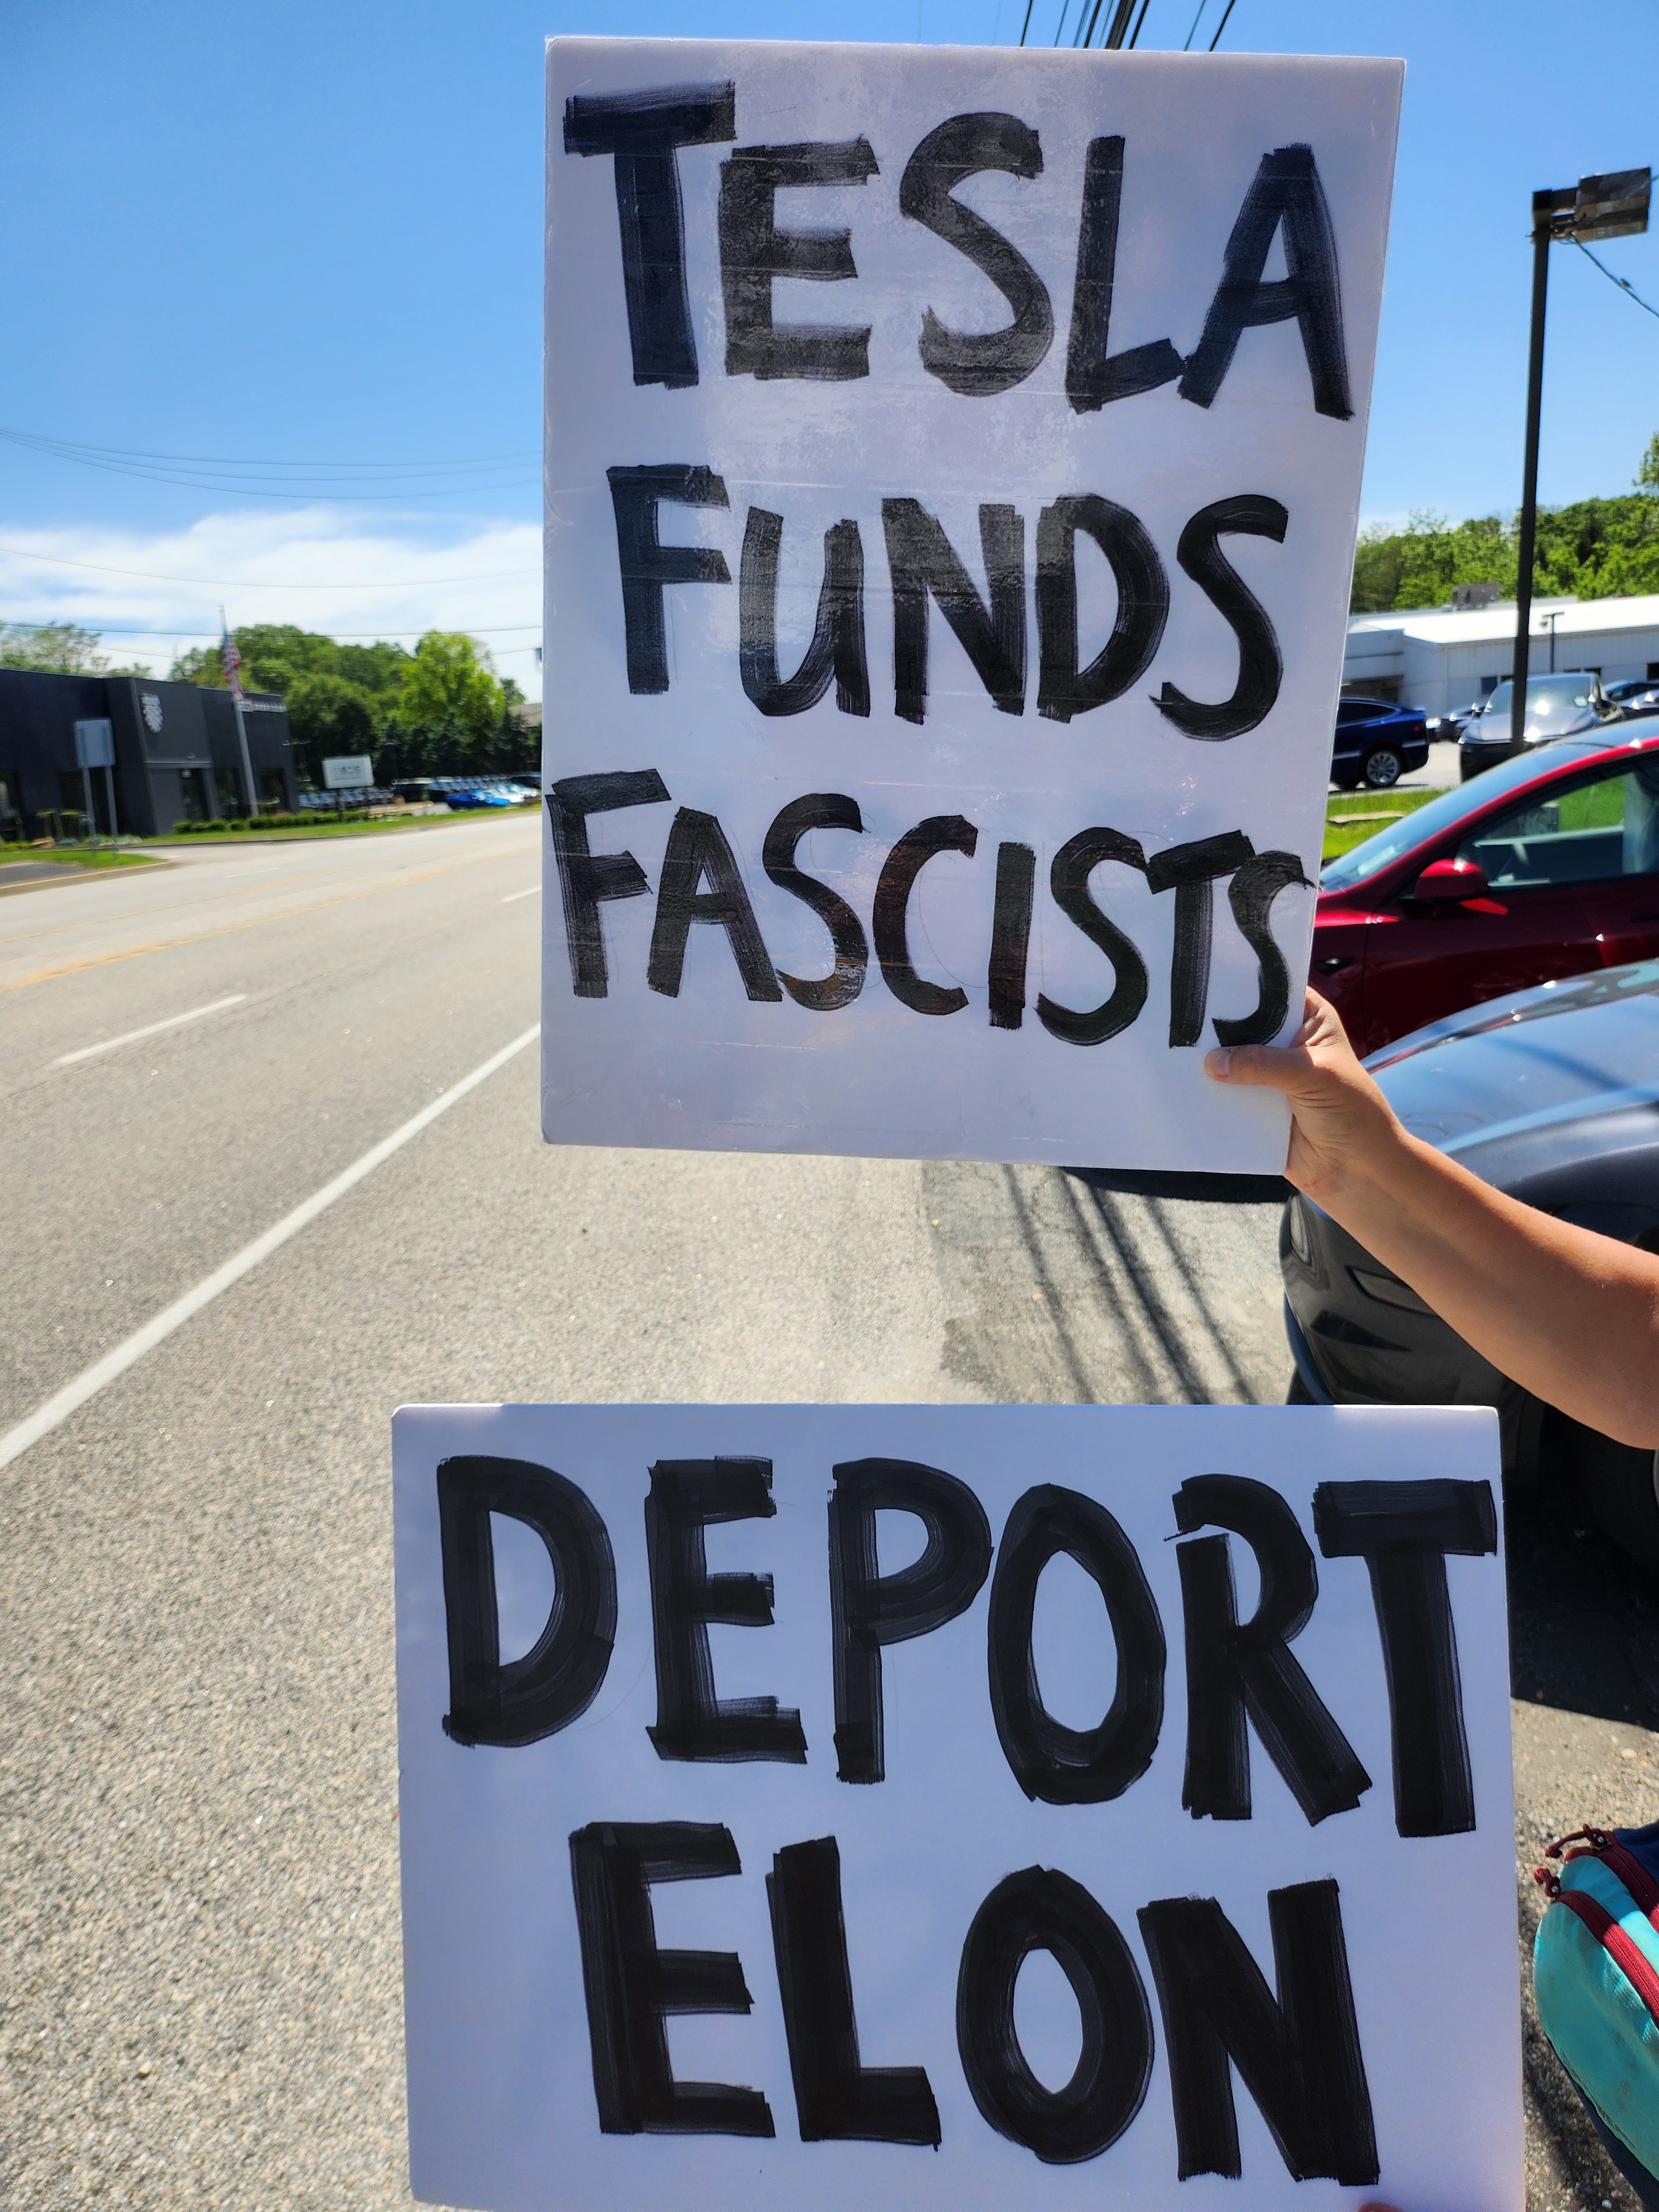 TESLA
FUNDS
FASCISTS
DEPORT
ELON